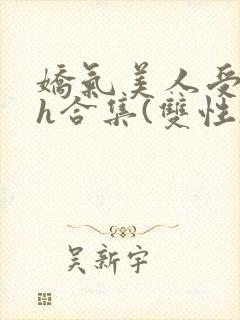 嬌氣美人受
h合集(雙性
吴新宇